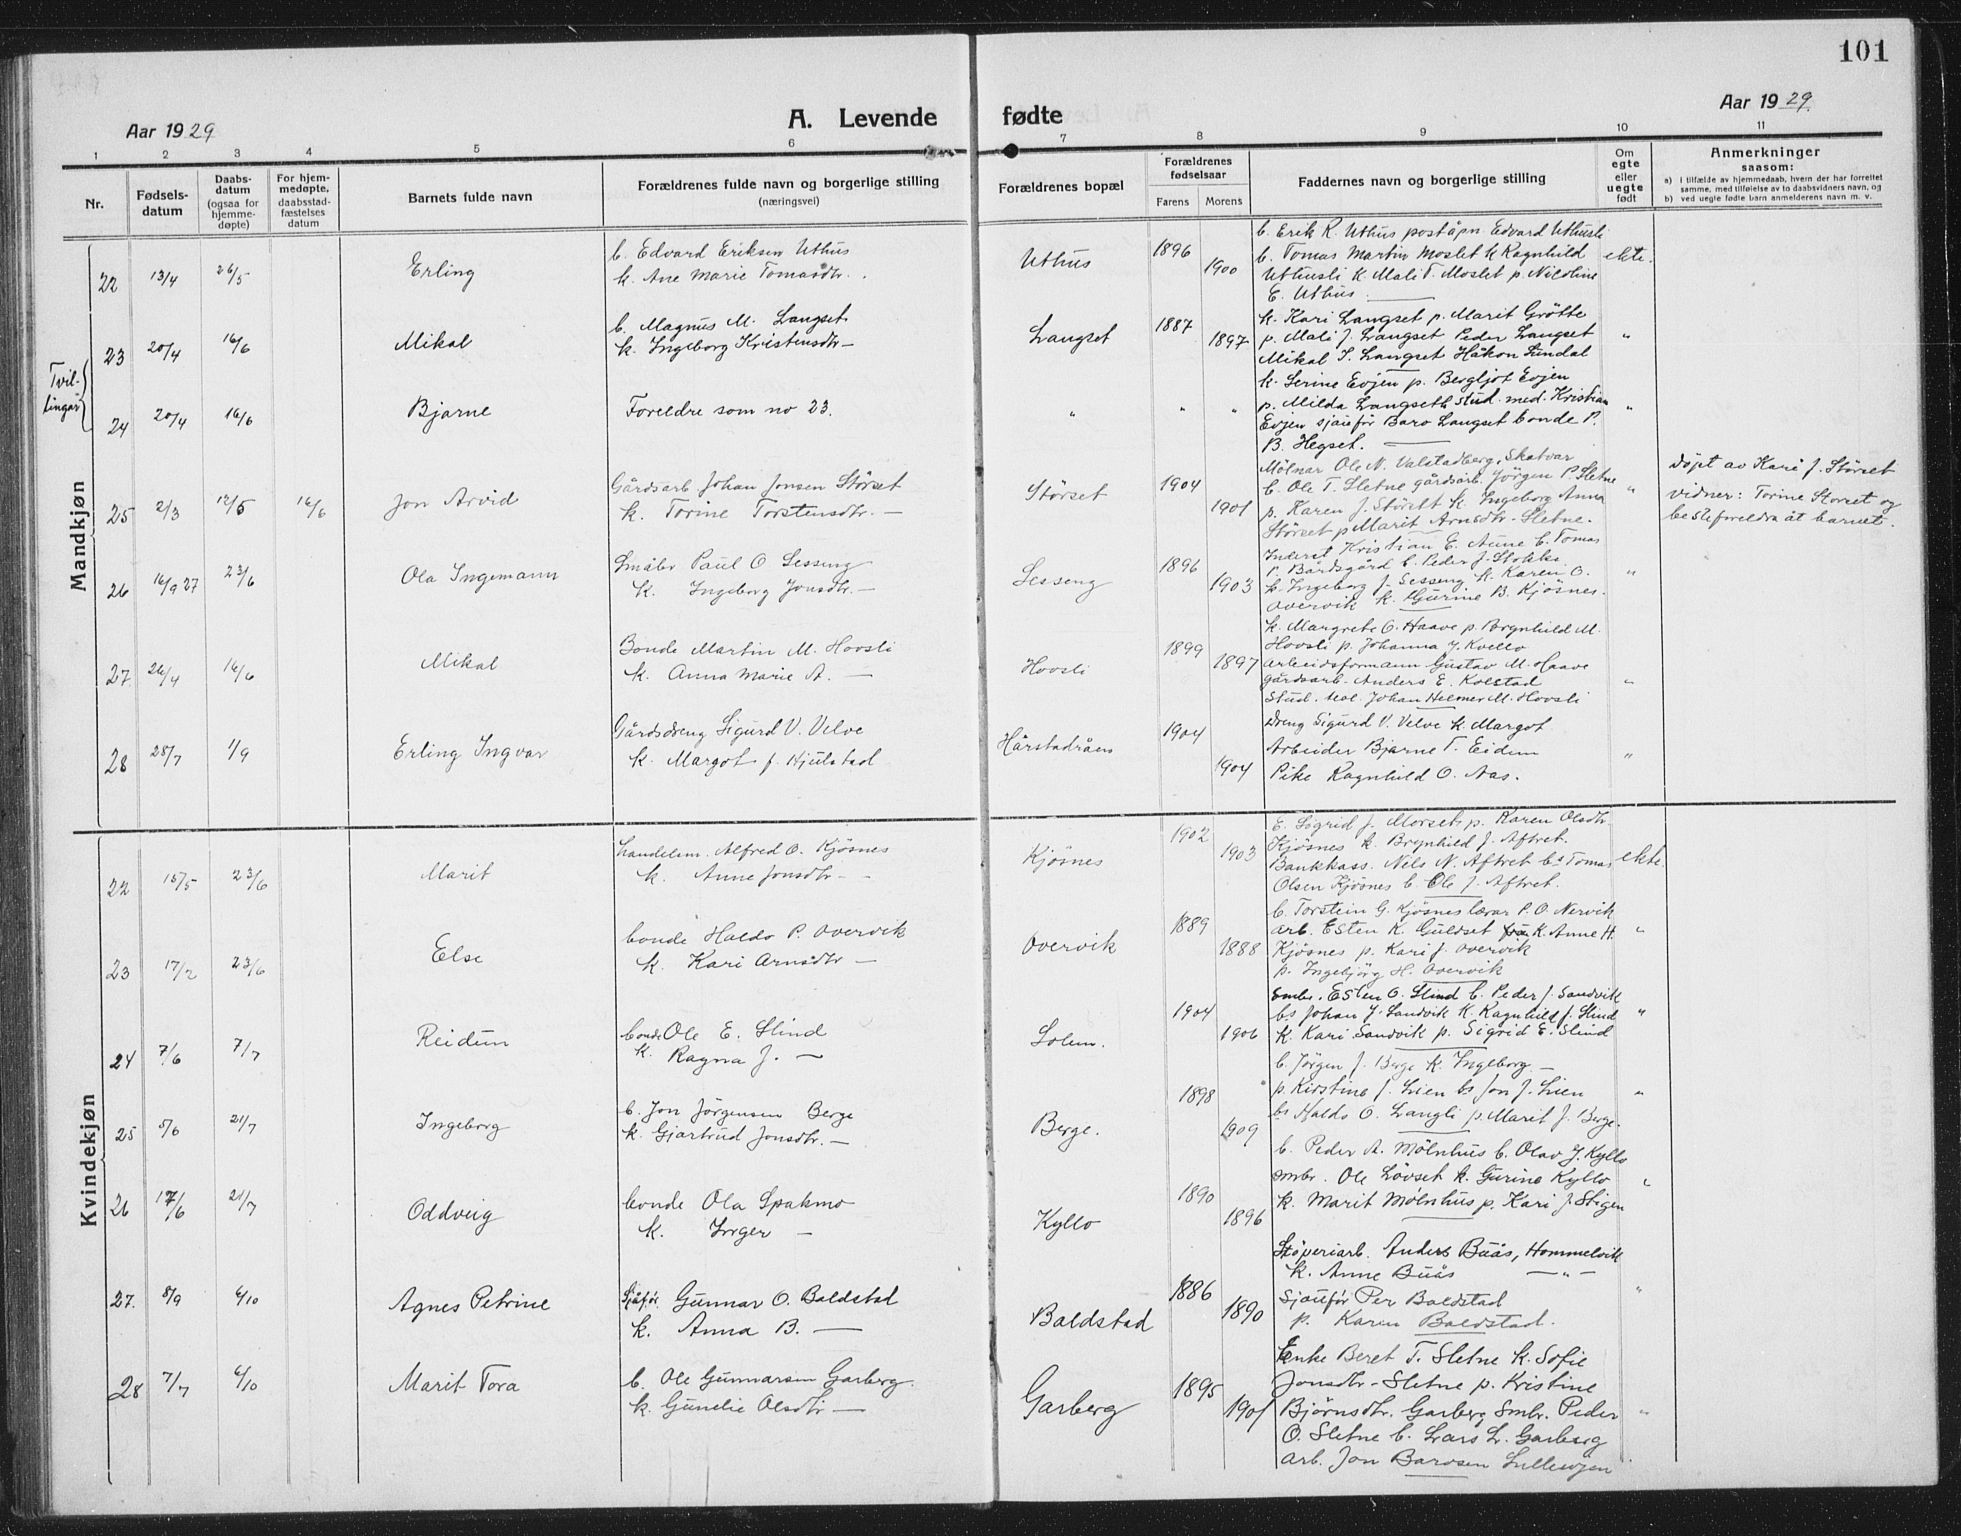 101
Aar 1929
A. Levende fødte
Aar 1929.
1 2 3 4 5 6 7 8 9 10 11
Nr.
Fødsels-
datum
Daabs-
datum
(ogsaa for
hjemme-
døpte)
For hjem-
medøpte,
daabsstad-
fæstelses
datum
Barnets fulde navn
Forældrenes fulde navn og borgerlige stilling
(næringsvei)
Forældrenes bopæl
Forældrenes
fødselsaar
Farens Morens
Faddernes navn og borgerlige stilling
Om
egte
eller
uegte
født
Anmerkninger
saasom:
a) i tilfælde av hjemmedaab, hvem der har forrettet
samme, med tilføielse av to daabsvidners navn, og
b) ved uegte fødte barn anmelderens navn m. v.
Mandkjøn
22 13/4 26/5 Erling
b. Edvard Eriksen Uthus
k. Ane Marie Tomasdtr.
Uthus 1896 1900
b. Erik R. Uthus poståpn Edvard Uthusli
b. Tomas Martin Moslet k Ragnhild
Uthusli k. Mali T. Moslet p. Nicoline
E. Uthus
ekte.
Tvil-
lingar
23 20/4 16/6 Mikal
b. Magnus M. Langset
k. Ingeborg Kristensdtr —
Langset 1887 1897
k. Kari Langset p. Marit Grötte
p. Mali J. Langset Peder Langset
Mikal J. Langset Håkon Sundal
"
24 20/4 16/6 Bjarne
Foreldre som no 23.
" " "
k. Serine Evjen p. Bergljot Evjen
p. Milda Langseth stud. med. Kristian
Evjen sjauför Baro Langset bonde P.
B. Hegset.
"
25 2/3 12/5 16/6 Jon Arvid
Gårdsarb. Johan Jonsen Störset
k. Torine Torstensdtr. —
Störset 1904 1901
Mölnar Ole N. Valstadberg, Skatvar
b. Ole T. Sletne gårdsarb. Jörgen P. Sletne
p. Karen J. Störsett k. Ingeborg Anna
Störset p Marit Arnsdtr. Sletne.
"
döpt av Kari J. Störset
vidner: Torine Storset og
besteforeldra åt barnet.
26 16/9 27 23/6 Ola Ingemann
Småbr Paul O Sesseng
k. Ingeborg Jonsdtr. —
Sesseng 1896 1903
Inderst Kristian E. Aune b. Tomas
P. Bårdsgård b. Peder J. Stokke
k. Ingeborg J. Sesseng k. Karen O.
Overvik k. Gurine B. Kjösnes.
"
27. 26/4 16/6 Mikal
Bonde Martin M. Hovsli
k. Anna Marie A. —
Hovsli 1899 1897
k. Margrete O. Haave p. Brynhild M.
Hovsli p. Johanna J. Kvello
arbeidsformann Gustav M. Haave
gårdsarb. Anders E. Kolstad
Stud. Johan Helmer M. Hovsli
"
28 28/7 1/9 Erling Ingvar
Gårdsdreng Sigurd V. Velve
k. Margot f. Hjulstad
Hårstadråen 1904 1904
Dreng Sigurd V. Velve k. Margot
Arbeider Bjarne T. Eidem
Pike Ragnhild O. Aas.
"
Kvindekjøn
22 15/5 23/6 Marit
handelsm. Alfred O. Kjösnes
k. Anne Jonsdtr —
Kjösnes 1902 1903
E. Sigrid J. Morset, p. Karen Olsdtr.
Kjösnes k. Brynhild J. Aftret.
Bankkass. Nels N. Aftret bs Tomas
Olsen Kjösnes b. Ole J. Aftret.
ekte.
23 17/2 23/6 Else
bonde Haldo P. Overvik
k. Kari Arnsdtr —
Overvik 1889 1888
b. Torstein G. Kjösnes lærar P. O. Nervik
arb. Esten K. Guldset k. Anne H.
Kjösnes p. Kari J. Overvik
p. Ingebjörg H. Overvik
"
24 7/6 7/7 Reidun
bonde Ole E. Slind
k. Ragna J. —
Solem. 1904 1906
smbr. Esten O. Slind b. Peder J. Sandvik
bs Johan J. Sandvik k. Ragnhild J. Slind
k. Kari Sandvik p. Sigrid E. Slind
"
25 5/6 21/7 Ingeborg
b. Jon Jörgensen Berge
k. Gjartrud Jonsdtr. —
Berge. 1898 1909
b. Jörgen J. Berge k. Ingeborg —
p. Kirstine J. Lien bs Jon J. Lien
bs Haldo O. Langli p. Marit J. Berge.
"
26 17/6 21/7 Oddveig
bonde Ola Spakmo
k. Inger —
Kyllo 1890 1896
b. Peder A. Mölnhus b. Olav J. Kyllo
smbr. Ole Lövset k. Gurine Kyllo
k. Marit Mölnhus p. Kari J. Stigen
"
27. 5/9 6/10 Agnes Petrine
Sjåför Gunnar O. Baldstad
k. Anna B. —
Baldstad 1886 1890
Stöperiarb. Anders Buås, Hommelvik
k. Anne Buås — " —
Sjauför Per Baldstad
p. Karen Baldstad.
"
28 7/7 6/10 Marit Tora
b. Ole Gunnarsen Garberg.
k. Gunelie Olsdtr —
Garberg 1895 1901
Enke Beret T. Sletne k. Sofie
Jonsdtr. Sletne p. Kristine
Björnsdtr. Garberg Smbr. Peder
O. Sletne b. Lars L. Garberg
arb. Jon Barosen Lillevojen
"